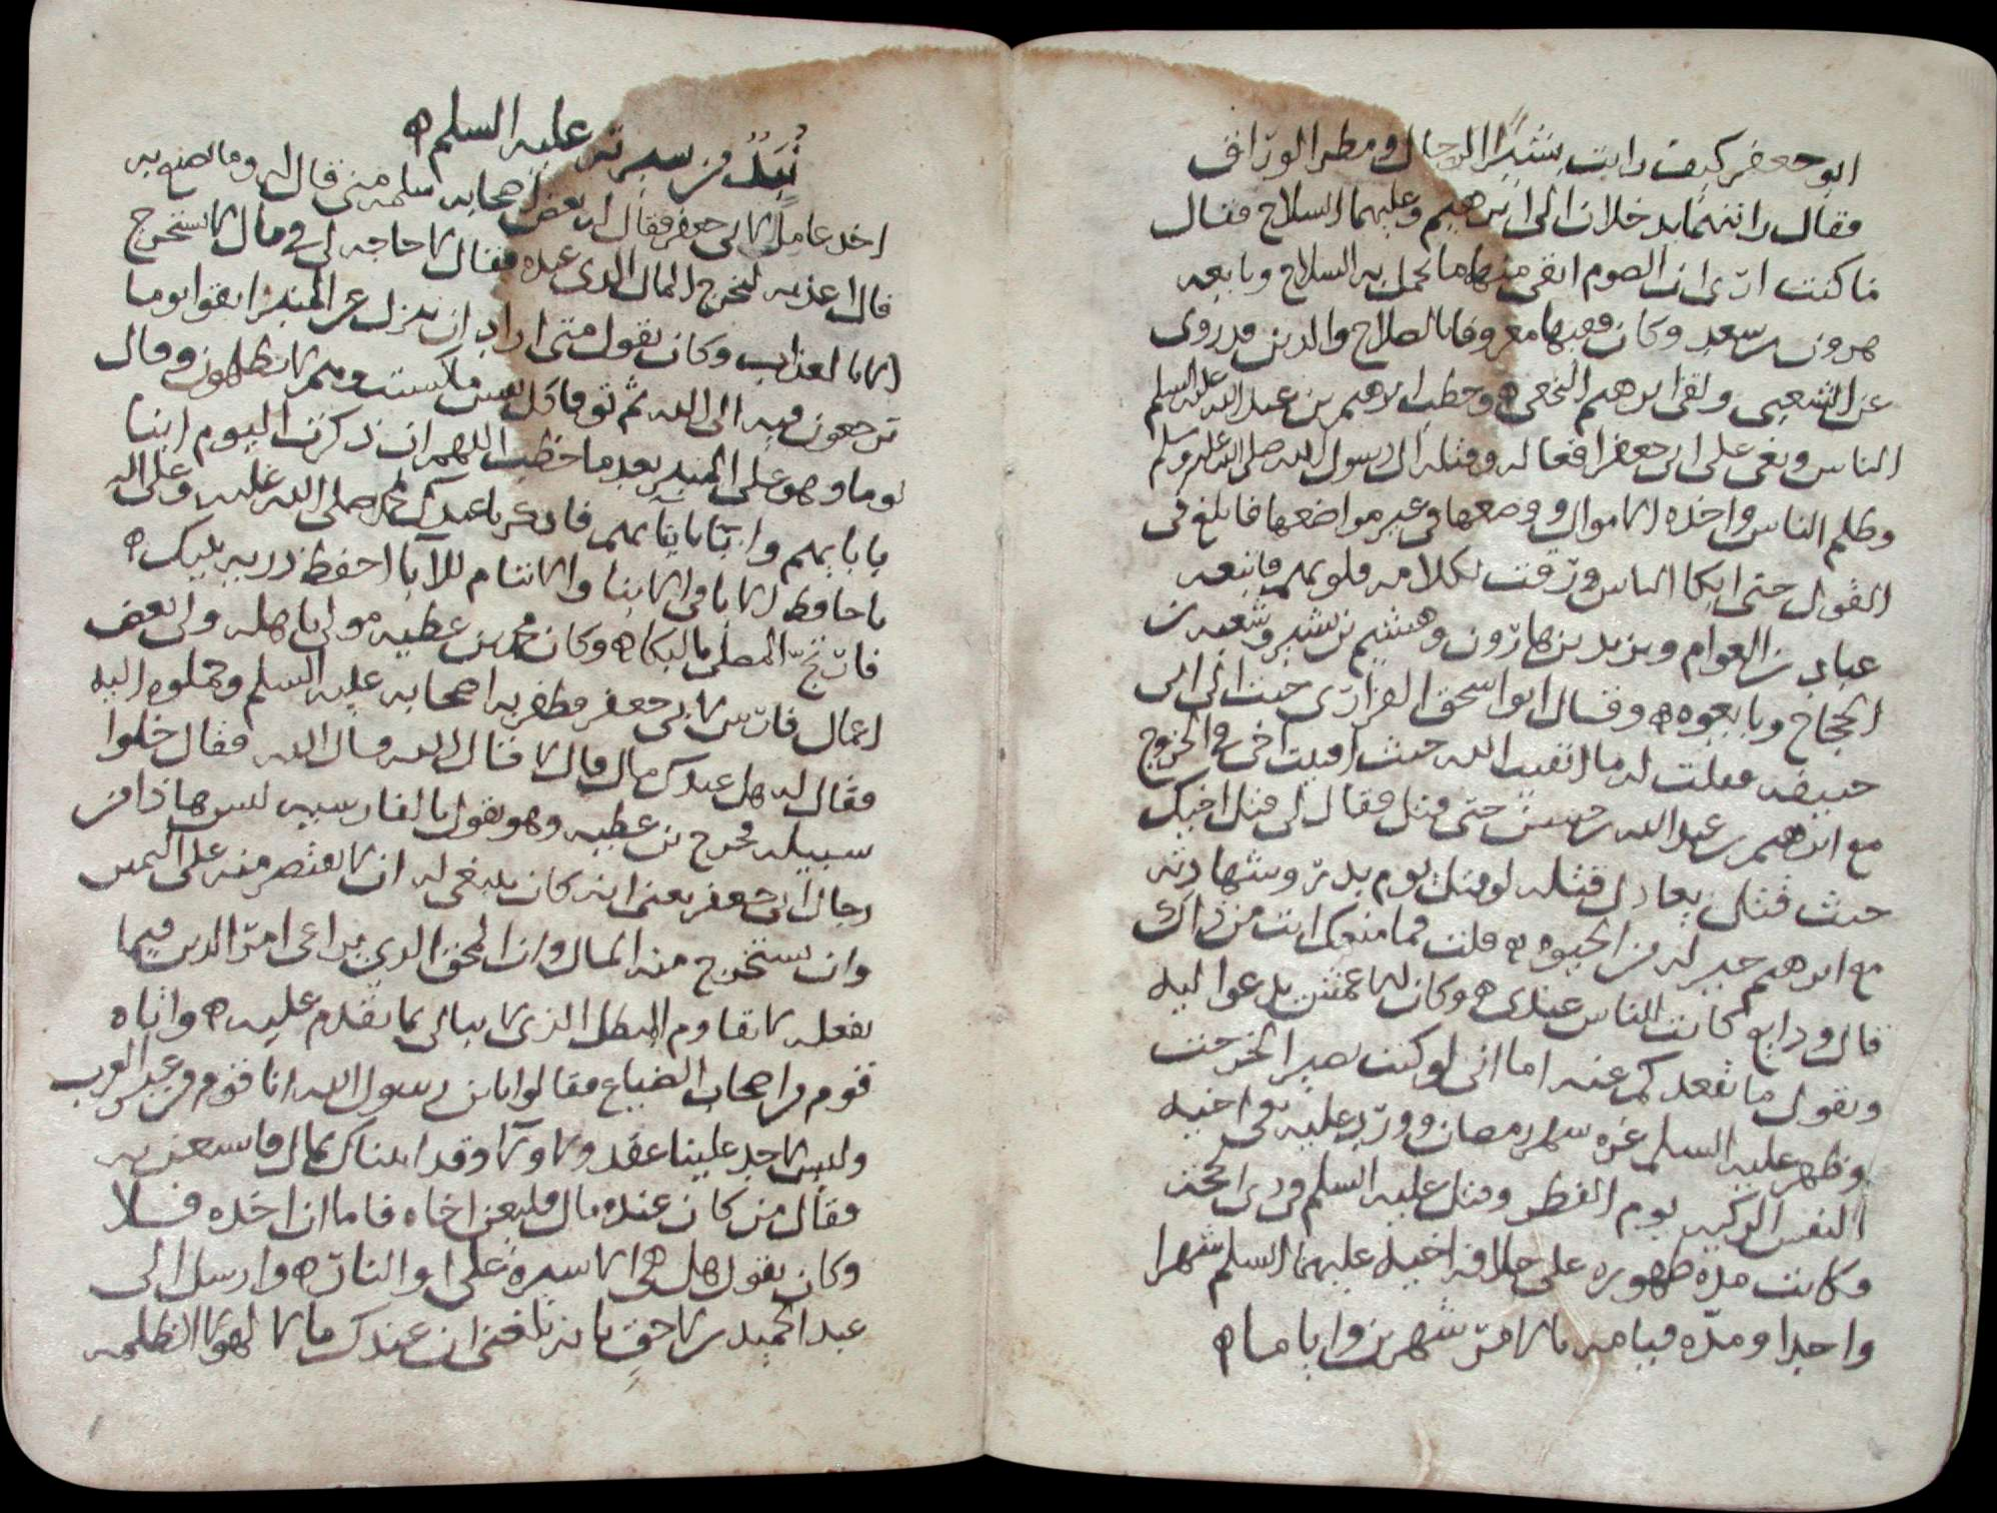 ابو جعفر كيف رايت بشيرا الرحال ومطر الوراق
فقال رايتهما يدخلان الى ابرهيم وعليهما السلاح فقال
ما كنت ارى ان الصوم ابقى منهما ما يحمل به السلاح وبايعه
هرون بن سعد وكان فقيها معروفا بالصلاح والدين قد روى
عن الشعبي ولقي ابرهيم النخعي ه وخطب ابرهيم بن عبد الله عليه السلم
الناس ونعى على ابي جعفر افعاله وقتله ال رسول الله صلى الله عليه وسلم
وظلم الناس واخذه الاموال ووضعها في غير مواضعها فابلغ في
القول حتى ابكا الناس ورقت لكلامه قلوبهم فاتبعه
عباد بن العوام ويزيد بن هارون وهشيم بن بشير وشعبة بن
الحجاج وبايعوه ه وقال ابو اسحق الفزاري جيت الى ابي
حنيفه فقلت له ما اتقيت الله حيث افتيت اخي في الخروج
مع ابرهيم بن عبد الله بن حسن حتى قتل فقال لي قتل اخيك
حيث قتل يعادل قتله لو قتل يوم بدر وشهادته
مع ابرهيم خير له من الحيوه ه قلت فما منعك انت من ذاك
قال ودايع كانت للناس عندي ه وكان الاعمش يدعوا اليه
ويقول ما يقعدكم عنه اما اني لو كنت بصيرا لخرجت
وظهر عليه السلم غره شهر رمضان وورد عليه نعي اخيه
النفس الزكيه يوم الفطر وقتل عليه السلم في ذي الحجه
وكانت مده ظهوره على خلافه اخيه عليهما السلم شهرا
واحدا ومده قيامه بالامر شهرين واياما ه
نبذ من سيرته عليه السلم ه
اخذ عاملا لابي جعفر فقال له بعض اصحابه سلمه مني قال له وما تصنع به
قال اعذبه ليخرج المال الذي عنده فقال لا حاجه لي في مال لا يستخرج
الا بالعذاب وكان يقول متى اراد ان ينزل عن المنبر اتقوا يوما
ترجعون فيه الى الله ثم توفى كل نفس ما كسبت وهم لا يظلمون وقال
يوما وهو على المنبر بعد ما خطب اللهم ان ذكرت اليوم ابنا
بابايهم وابا بابنايهم فاذكرنا عندك بمحمد صلى الله عليه وعلى اله
يا حافظ الابا في الابنا والابنا للآبا احفظ ذريه نبيك ه
فارتج المصلى بالبكا ه وكان محمد بن عطيه مولى باهله ولي بعض
اعمال فارس لابي جعفر فظفر به اصحابه عليه السلم وحملوه اليه
فقال له هل عندك مال قال لا قال الله قال الله فقال خلوا
سبيله فخرج بن عطيه وهو يقول بالفارسيه ليس هاذا من
رجال ابي جعفر يعني انه كان ينبغي له ان لا يقتصر منه على اليمين
وان يستخرج منه المال وان المحق الذي يراعي امر الدين فيما
يفعله لا يقاوم المبطل الذي لا يبالي بما يقدم عليه ه واتاه
قوم من اصحاب الضياع فقالوا يا بن رسول الله انا قوم من غير العرب
وليس لاحد علينا عقد ولا ولآ وقد اتيناك بمال فاستعن به
فقال من كان عنده مال فليعن اخاه فاما ان اخذه فلا
وكان يقول هل هي الا سيره علي او النار ه وارسل الى
عبد الحميد بن لاحق بانه بلغني ان عندك مالا لهولا الظلمه